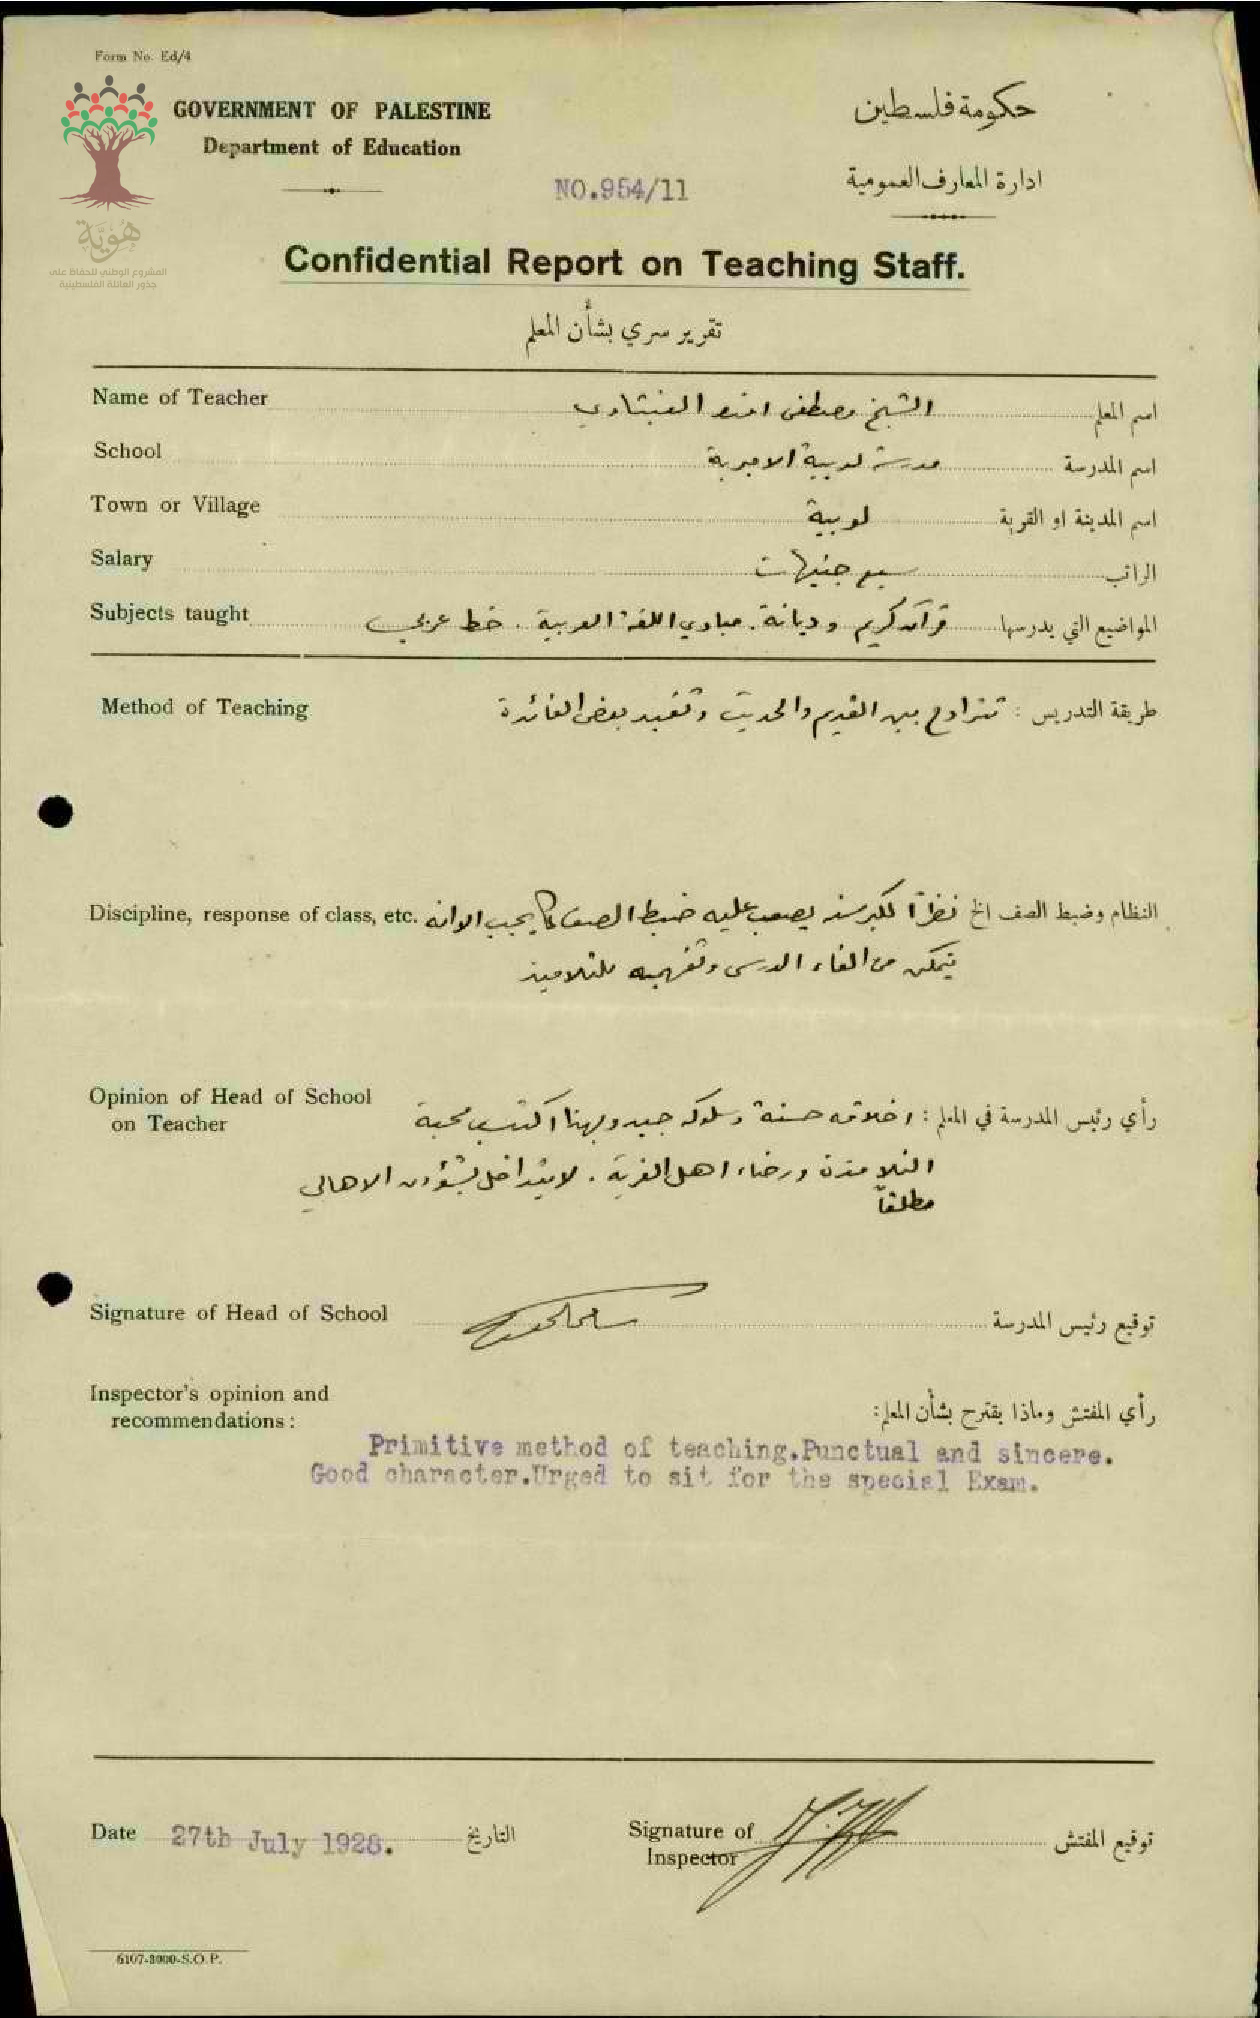 Form No. Ed/4
GOVERNMENT OF PALESTINE
Department of Education
حكومة فلسطين
ادارة المعارف العمومية
NO.954/11
هُوِيَّة
المشروع الوطني للحفاظ على
جذور العائلة الفلسطينية
Confidential Report on Teaching Staff.
تقرير سري بشأن المعلم
Name of Teacher الشيخ مصطفى اسم المعلم
School مدرسة لوبية الاميرية اسم المدرسة
Town or Village لوبية اسم المدينة او القرية
Salary سبع جنيهات الراتب
Subjects taught قرآن كريم وديانة. مبادي اللغة العربية. خط عربي المواضيع التي يدرسها
Method of Teaching طريقة التدريس : تتراوح بين القديم والحديث وتفيد بعض الفائدة
Discipline, response of class, etc. النظام وضبط الصف الخ نظراً لكبر سنه يصعب عليه ضبط الصف كما يجب الا انه
يتمكن من القاء الدرس وتفهيمه للتلاميذ
Opinion of Head of School
on Teacher
رأي رئيس المدرسة في المعلم : اخلاقه حسنة وسلوكه جيد وبهذا اكتسب محبة
التلامذة ورضاء اهل القرية. لا يتداخل بشؤون الاهالي
مطلقاً
Signature of Head of School توقيع رئيس المدرسة
Inspector's opinion and
recommendations :
رأي المفتش وماذا يقترح بشأن المعلم:
Primitive method of teaching.Punctual and sincere.
Good character.Urged to sit for the special Exam.
Date 27th July 1928. التاريخ
Signature of
Inspector
توقيع المفتش
6107-3000-S.O.P.